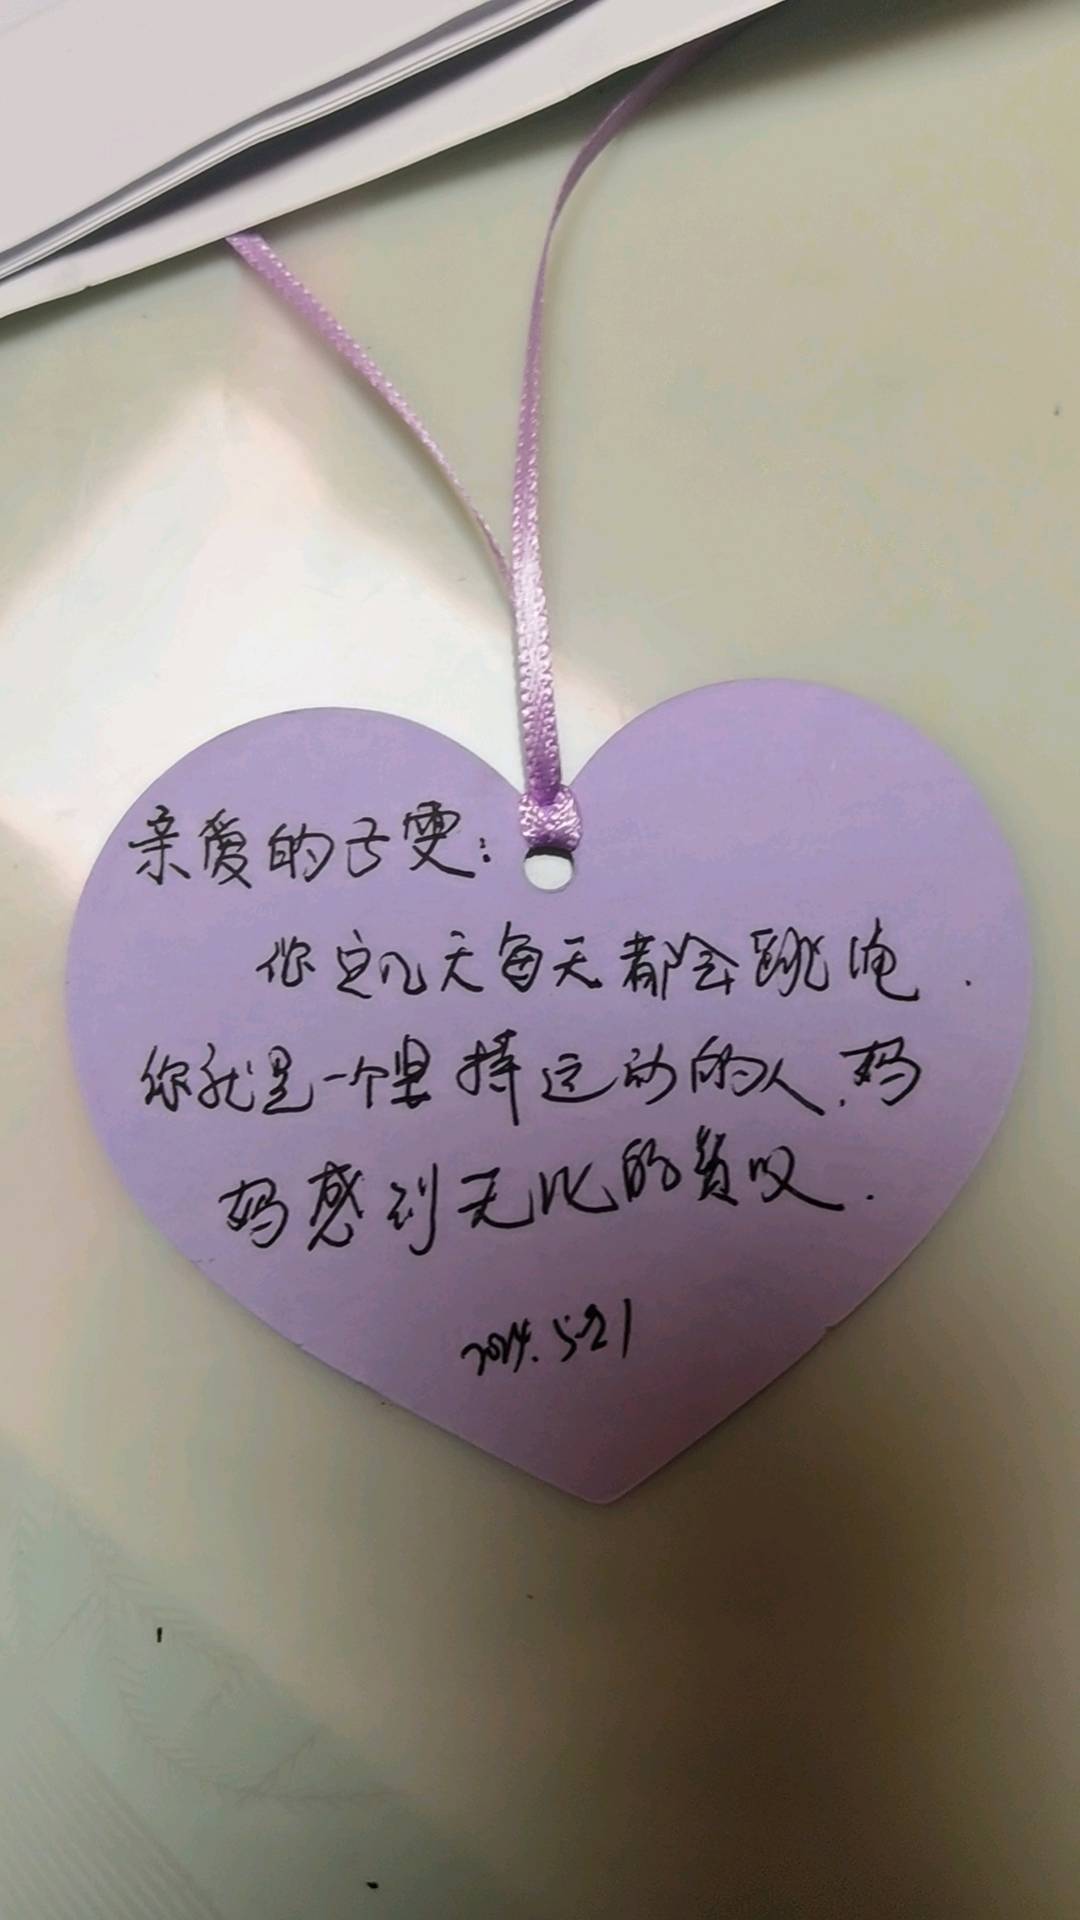 亲爱的子雯：
你这几天每天都会跳绳.
你就是一个坚持运动的人.妈
妈感到无比的赞叹.
2024.5.21